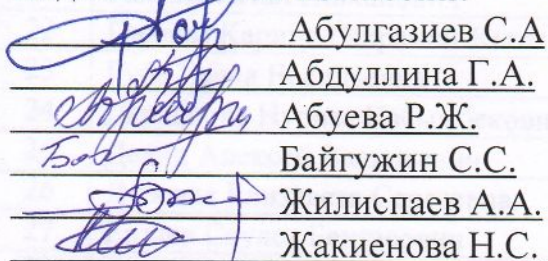 Абулгазиев С.А
Абдуллина Г.А.
Абуева Р.Ж.
Байгужин С.С.
Жилиспаев А.А.
Жакиенова Н.С.